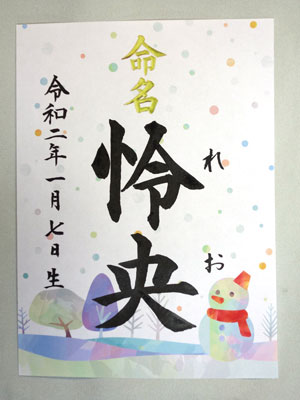 命名
怜央
れお
令和二年一月七日生